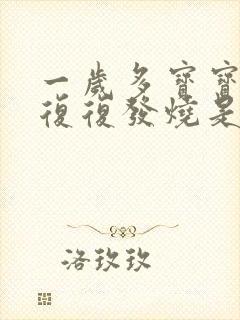 一歲多寶寶
復復發燒是
洛玫玫